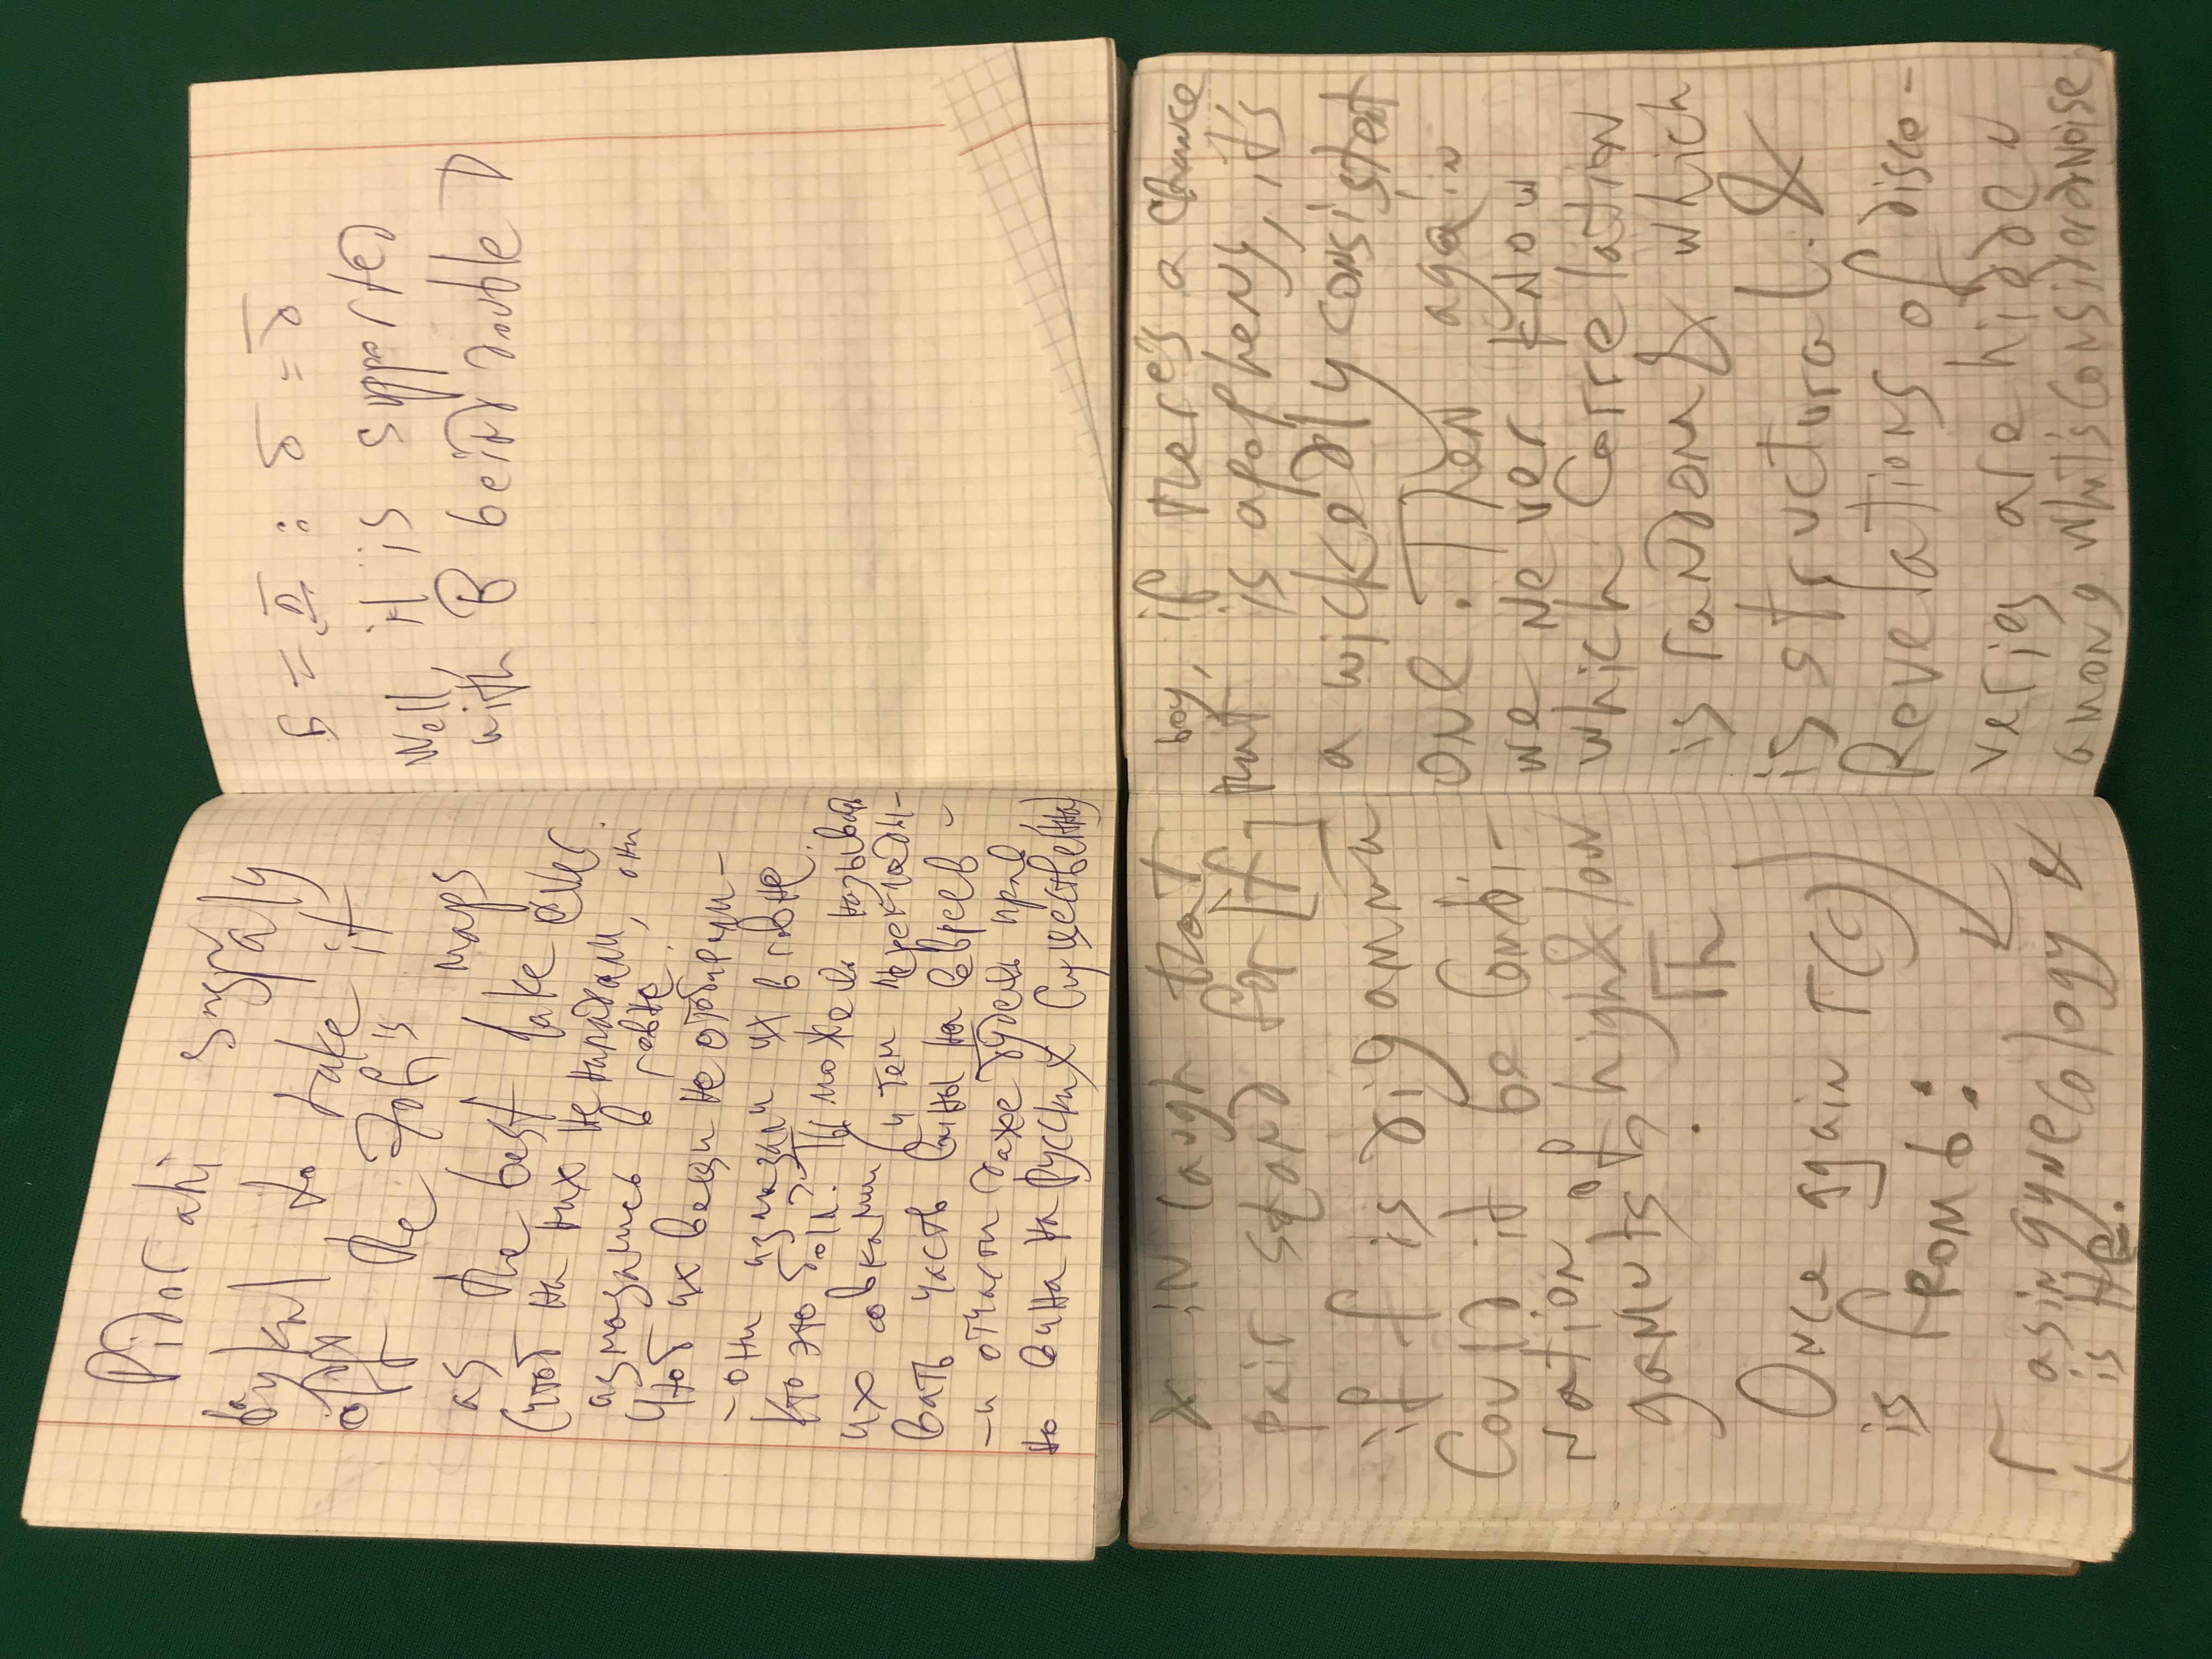 Pidorahi
to take it
off the
maps
as the best lake ever.
(чтоб на них не нападали, они
измазались в говне.
Чтоб их вещи не отобирали-
-они измазали их в говне.
Кто это был? Ты можешь называть
их совками (и тем перeклады-
вать часть вины на евреев-
-и отчасти даже будешь прав,
но вина на русских существенна)
Б = П : δ = δ
Well, it is supported
with B being double D
& in laugh that
pair stand for [f]
if f is digamma
Could it be Combi-
nation of high & low
gamuts?
Гh
Once again Г(C)
is from b:
Г as in gynecology &
h is He.
boy, if there's a chance
that is apopheny, it's
a wickedly consistent
one. Then again
we never know
which Correlation
is random & which
is structural. &
Revelations of disco-
veries are hidden
among what's considered noise